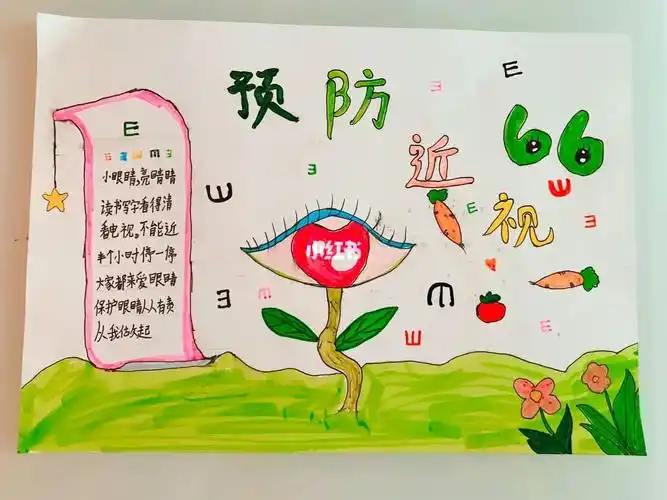 预防
近视
66
E
E
E
小眼睛,亮晴晴
读书写字看得清
看电视。不能近
半个小时停一停
大家都来爱眼睛
保护眼睛人人有责
从我做起
小红书
E
E
E
E
E